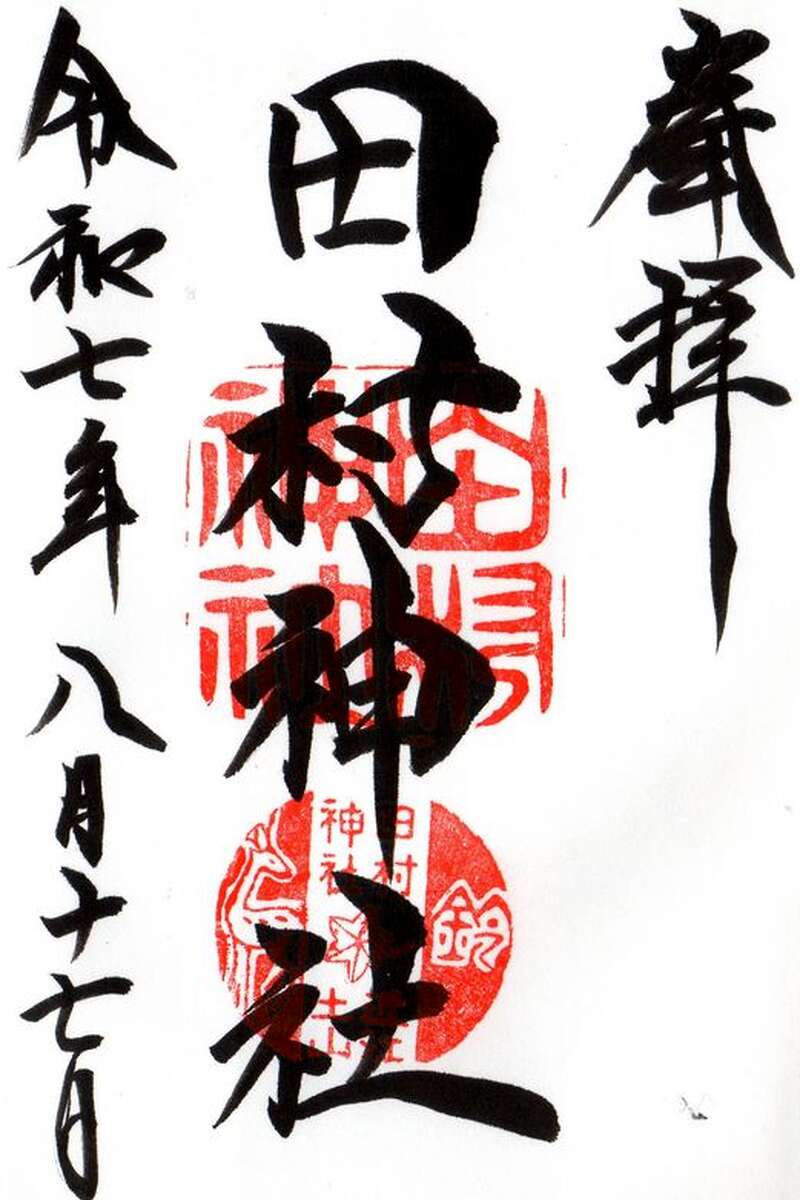 奉拝
田村神社
令和七年八月十七日
田村
神社
田村
神社
鈴
土山